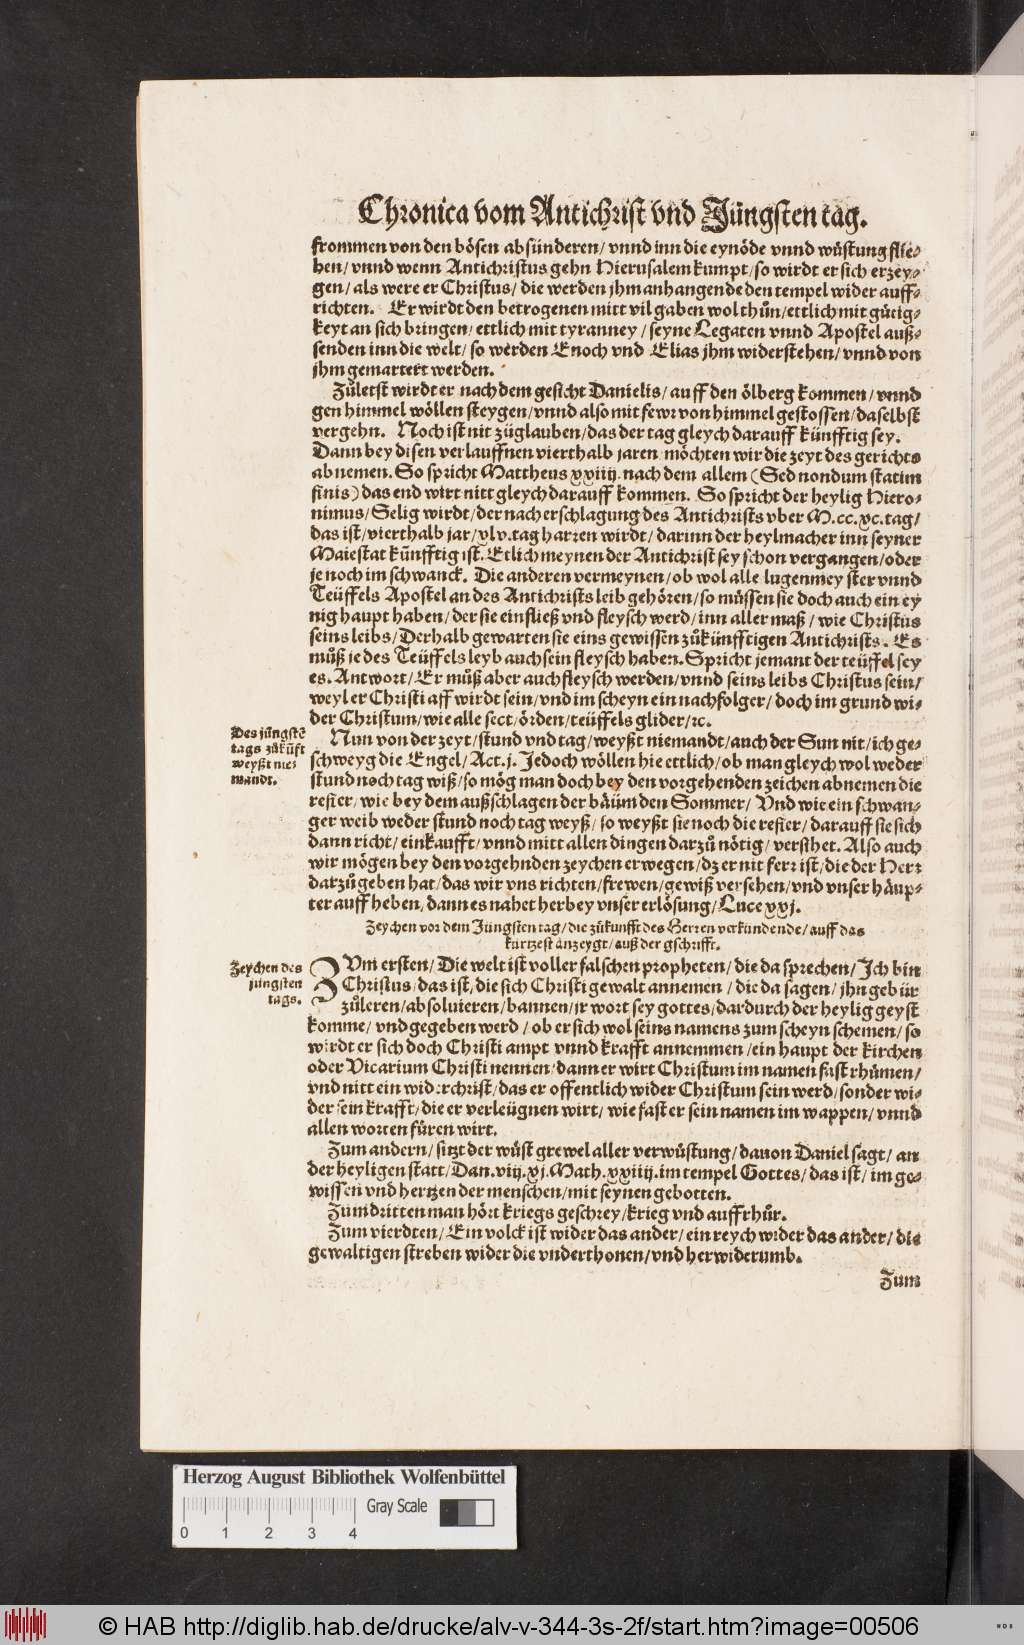 Chronica vom Antichrist vnd Jüngsten tag.
frommen von den bösen absünderen/ vnnd inn die eynöde vnnd wüstung flie-
hen/ vnnd wenn Antichristus gehn Hierusalem kumpt/ so wirdt er sich erzey-
gen/ als were er Christus/ die werden jhm anhangende den tempel wider auff-
richten. Er wirdt den betrogenen mitt vil gaben wol thůn/ ettlich mit gütig-
keyt an sich bringen/ ettlich mit tyranney/ seyne Legaten vnnd Apostel auß-
senden inn die welt/ so werden Enoch vnd Elias jhm widerstehen/ vnnd von
jhm gemartert werden.
Zůletst wirdt er nach dem gesicht Danielis/ auff den ölberg kommen/ vnnd
gen himmel wöllen steygen/ vnnd also mit fewr von himmel gestossen/ daselbst
vergehn. Noch ist nit züglauben/ das der tag gleych darauff künfftig sey.
Dann bey disen verlauffnen vierthalb jaren/ möchten wir die zeyt des gerichts
abnemen. So spricht Mattheus xxiiij. nach dem allem (Sed nondum statim
finis) das end wirt nitt gleych darauff kommen. So spricht der heylig Hiero-
nimus/ Selig wirdt/ der nach erschlagung des Antichrists vber M.cc.xc. tag/
das ist/ vierthalb jar/ xlv. tag harren wirdt/ darinn der heylmacher inn seyner
Maiestat künfftig ist. Etlich meynen der Antichrist sey schon vergangen/ oder
je noch im schwanck. Die anderen vermeynen/ ob wol alle lugenmeyster vnnd
Teüffels Apostel an des Antichrists leib gehören/ so müssen sie doch auch ein ey
nig haupt haben/ der sie einfließ vnd fleysch werd/ inn aller maß/ wie Christus
seins leibs/ Derhalb gewarten sie eins gewissen zůkünfftigen Antichrists. Es
můß je des Teüffels leyb auch sein fleysch haben. Spricht jemant der teüffel sey
es. Antwort/ Er můß aber auch fleysch werden/ vnnd seins leibs Christus sein/
weyl er Christi aff wirdt sein/ vnd im scheyn ein nachfolger/ doch im grund wi-
der Christum/ wie alle sect/ örden/ teüffels glider/ ꝛc.
Des jüngstē
tags zůkūft
weyßt nie-
mandt.
Nun von der zeyt/ stund vnd tag/ weyßt niemandt/ auch der Sun nit/ ich ge-
schweyg die Engel/ Act. j. Jedoch wöllen hie ettlich/ ob man gleych wol weder
stund noch tag wiß/ so mög man doch bey den vorgehenden zeichen abnemen die
refier/ wie bey dem außschlagen der bäüm den Sommer/ Vnd wie ein schwan-
ger weib weder stund noch tag weyß/ so weyßt sie noch die refier/ darauff sie sich
dann richt/ einkaufft/ vnnd mitt allen dingen darzů nötig/ versihet. Also auch
wir mögen bey den vorgehnden zeychen erwegen/ dz er nit ferr ist/ die der Herr
darzů geben hat/ das wir vns richten/ frewen/ gewiß versehen/ vnd vnser häup-
ter auff heben/ dann es nahet herbey vnser erlösung/ Luce xxj.
Zeychen vor dem Jüngsten tag/ die zůkunfft des Herren verkündende/ auff das
kürtzest anzeygt/ auß der gschrifft.
Zeychen des
jüngsten
tags.
ZVm ersten/ Die welt ist voller falschen propheten/ die da sprechen/ Jch bin
Christus/ das ist/ die sich Christi gewalt annemen/ die da sagen/ jhn gebür
zůleren/ absoluieren/ bannen/ jr wort sey gottes/ dardurch der heylig geyst
komme/ vnd gegeben werd/ ob er sich wol seins namens zum scheyn schemen/ so
wirdt er sich doch Christi ampt vnnd krafft annemmen/ ein haupt der kirchen
oder Vicarium Christi nennen/ dann er wirt Christum im namen fast rhümen/
vnd nitt ein widerchrist/ das er offentlich wider Christum sein werd/ sonder wi-
der sein krafft/ die er verleügnen wirt/ wie fast er sein namen im wappen/ vnnd
allen worten füren wirt.
Zum andern/ sitzt der wüst grewel aller verwüstung/ dauon Daniel sagt/ an
der heyligen statt/ Dan. viij. xj. Math. xxiiij. im tempel Gottes/ das ist/ im ge-
wissen vnd hertzen der menschen/ mit seynen gebotten.
Zum dritten man hört kriegs geschrey/ krieg vnd auffrhůr.
Zum vierdten/ Ein volck ist wider das ander/ ein reych wider das ander/ die
gewaltigen streben wider die vnderthonen/ vnd herwiderumb.
Zum
Herzog August Bibliothek Wolfenbüttel
Gray Scale
0 1 2 3 4
© HAB http://diglib.hab.de/drucke/alv-v-344-3s-2f/start.htm?image=00506